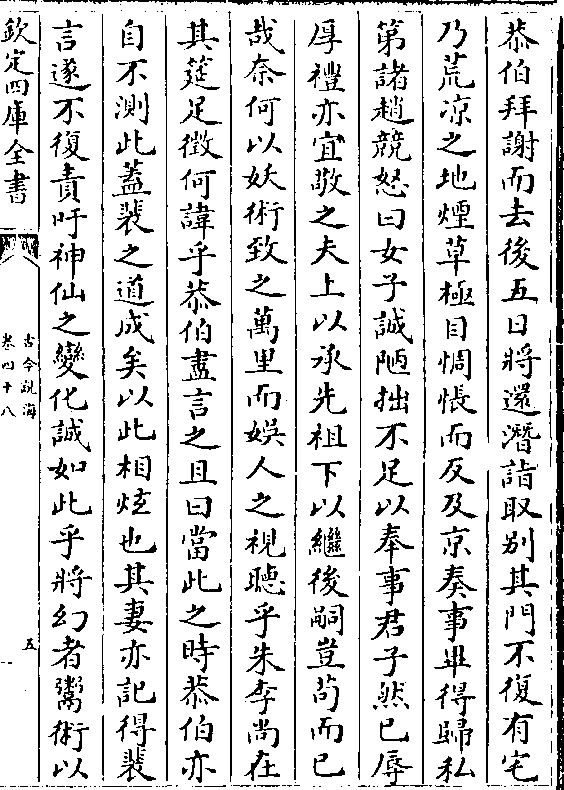 恭伯拜謝而去後五日將還潛詣取别其門不復有宅
乃荒凉之地煙草極目惆悵而反及京奏事畢得歸私
第諸趙競怒曰女子誠陋拙不足以奉事君子然已辱
厚禮亦宜敬之夫上以承先祖下以繼後嗣豈苟而已
哉奈何以妖術致之萬里而娱人之視聽乎朱李尚在
其筵足徵何諱乎恭伯盡言之且曰當此之時恭伯亦
自不測此蓋裴之道成矣以此相炫也其妻亦記得裴
言遂不復責吁神仙之變化誠如此乎將幻者鬻術以
欽定四庫全書
古今說海
卷四十八
五